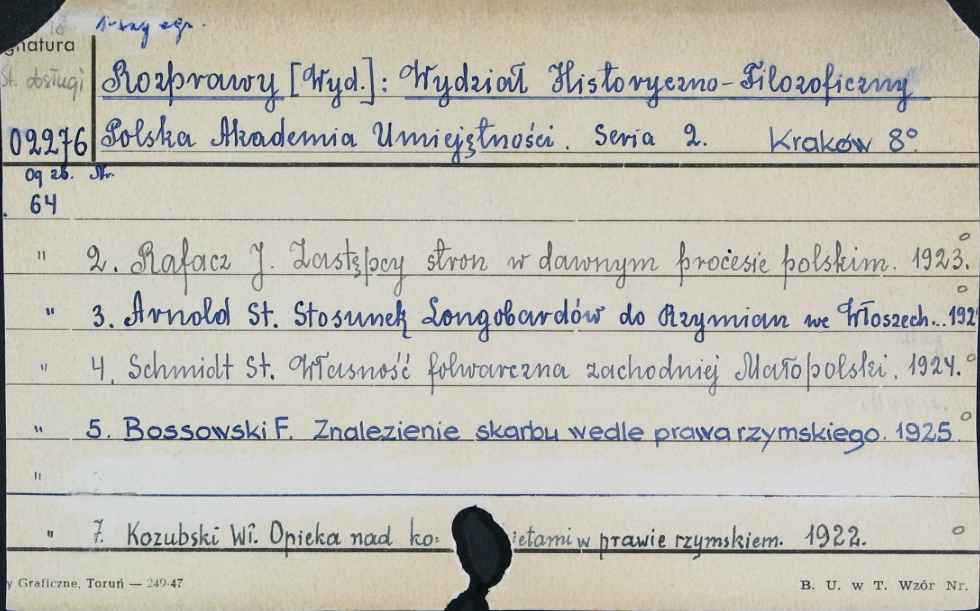 1-szy egz.
gnatura
St. obsługi
Rozprawy [Wyd.]: Wydział Historyczno-Filozoficzny
02276 Polska Akademia Umiejętności. Seria 2. Kraków 8°
Og zb. Nr.
64
" 2. Rafacz J. Zastępcy stron w dawnym procesie polskim. 1923.
" 3. Arnold St. Stosunek Longobardów do Rzymian we Włoszech... 192
" 4. Schmidt St. Własność folwarczna zachodniej Małopolski. 1924.
" 5. Bossowski F. Znalezienie skarbu wedle prawa rzymskiego. 1925
"
" 7. Kozubski Wł. Opieka nad ko: ietami w prawie rzymskiem. 1922.
y Graficzne, Toruń — 249-47 B. U. w T. Wzór Nr.